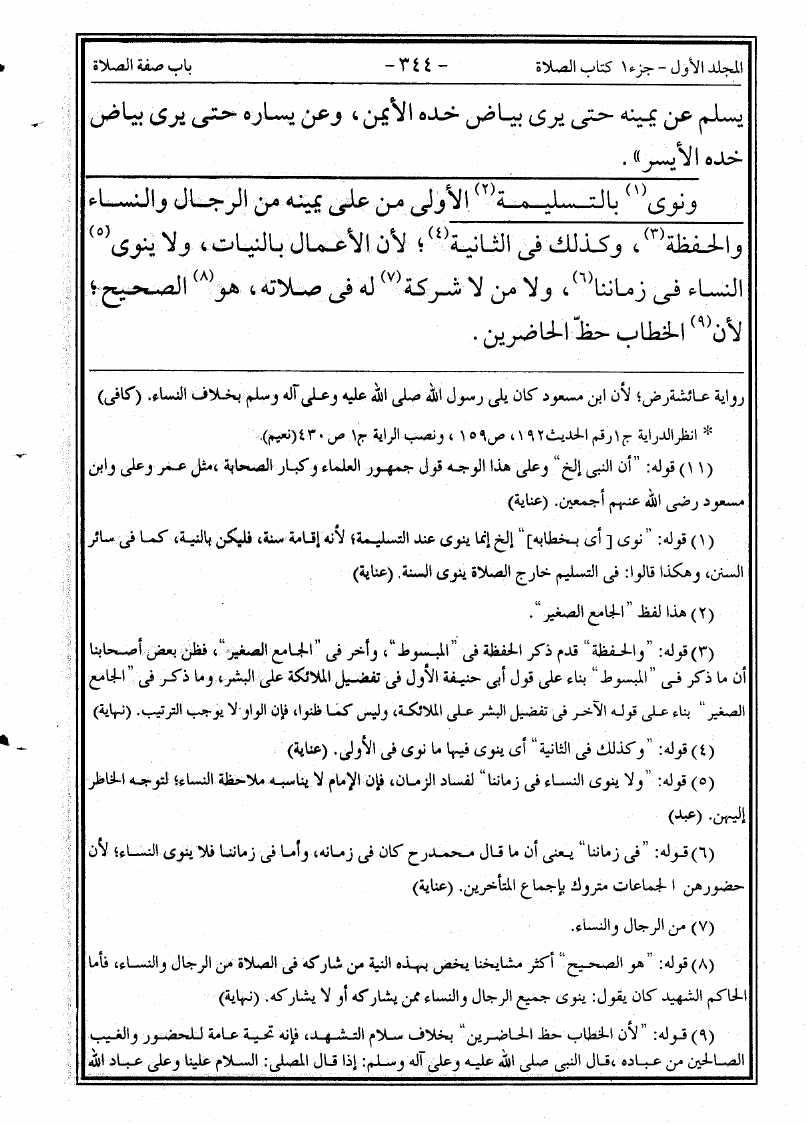 المجلد الأول - جزء ١ كتاب الصلاة - ٣٤٤ - باب صفة الصلاة
يسلم عن يمينه حتى يرى بياض خده الأيمن، وعن يساره حتى يرى بياض
خده الأيسر».
ونوى(١) بالتسليمة(٢) الأولى من على يمينه من الرجال والنساء
والحفظة(٣)، وكذلك فى الثانية(٤)؛ لأن الأعمال بالنيات، ولا ينوى(٥)
النساء فى زماننا(٦)، ولا من لا شركة(٧) له فى صلاته، هو(٨) الصحيح؛
لأن(٩) الخطاب حظّ الحاضرين.
رواية عائشةرض؛ لأن ابن مسعود كان يلى رسول الله صلى الله عليه وعلى آله وسلم بخلاف النساء. (كافى)
* انظرالدراية ج١ رقم الحديث١٩٢، ص١٥٩، ونصب الراية ج١ ص٤٣٠(نعيم).
(١١) قوله: "أن النبى إلخ" وعلى هذا الوجه قول جمهور العلماء وكبار الصحابة ،مثل عمر وعلى وابن
مسعود رضى الله عنهم أجمعين. (عناية)
(١) قوله: "نوى [أى بخطابه]" إلخ إنما ينوى عند التسليمة؛ لأنه إقامة سنة، فليكن بالنية، كما فى سائر
السنن، وهكذا قالوا: فى التسليم خارج الصلاة ينوى السنة. (عناية)
(٢) هذا لفظ "الجامع الصغير".
(٣) قوله: "والحفظة" قدم ذكر الحفظة فى "المبسوط"، وأخر فى "الجامع الصغير"، فظن بعض أصحابنا
أن ما ذكر فى "المبسوط" بناء على قول أبى حنيفة الأول فى تفضيل الملائكة على البشر، وما ذكر فى "الجامع
الصغير" بناء على قوله الآخر فى تفضيل البشر على الملائكة، وليس كما ظنوا، فإن الواو لا يوجب الترتيب. (نهاية)
(٤) قوله: "وكذلك فى الثانية" أى ينوى فيها ما نوى فى الأولى. (عناية)
(٥) قوله: "ولا ينوى النساء فى زماننا" لفساد الزمان، فإن الإمام لا يناسبه ملاحظة النساء؛ لتوجه الخاطر
إليهن. (عبد)
(٦) قوله: "فى زماننا" يعنى أن ما قال محمدرح كان فى زمانه، وأما فى زماننا فلا ينوى النساء؛ لأن
حضورهن ا لجماعات متروك بإجماع المتأخرين. (عناية)
(٧) من الرجال والنساء.
(٨) قوله: "هو الصحيح" أكثر مشايخنا يخص بهذه النية من شاركه فى الصلاة من الرجال والنساء، فأما
الحاكم الشهيد كان يقول: ينوى جميع الرجال والنساء ممن يشاركه أو لا يشاركه. (نهاية)
(٩) قوله: "لأن الخطاب حظ الحاضرين" بخلاف سلام التشهد، فإنه تحية عامة للحضور والغيب
الصالحين من عباده ،قال النبى صلى الله عليه وعلى آله وسلم: إذا قال المصلى: السلام علينا وعلى عباد الله